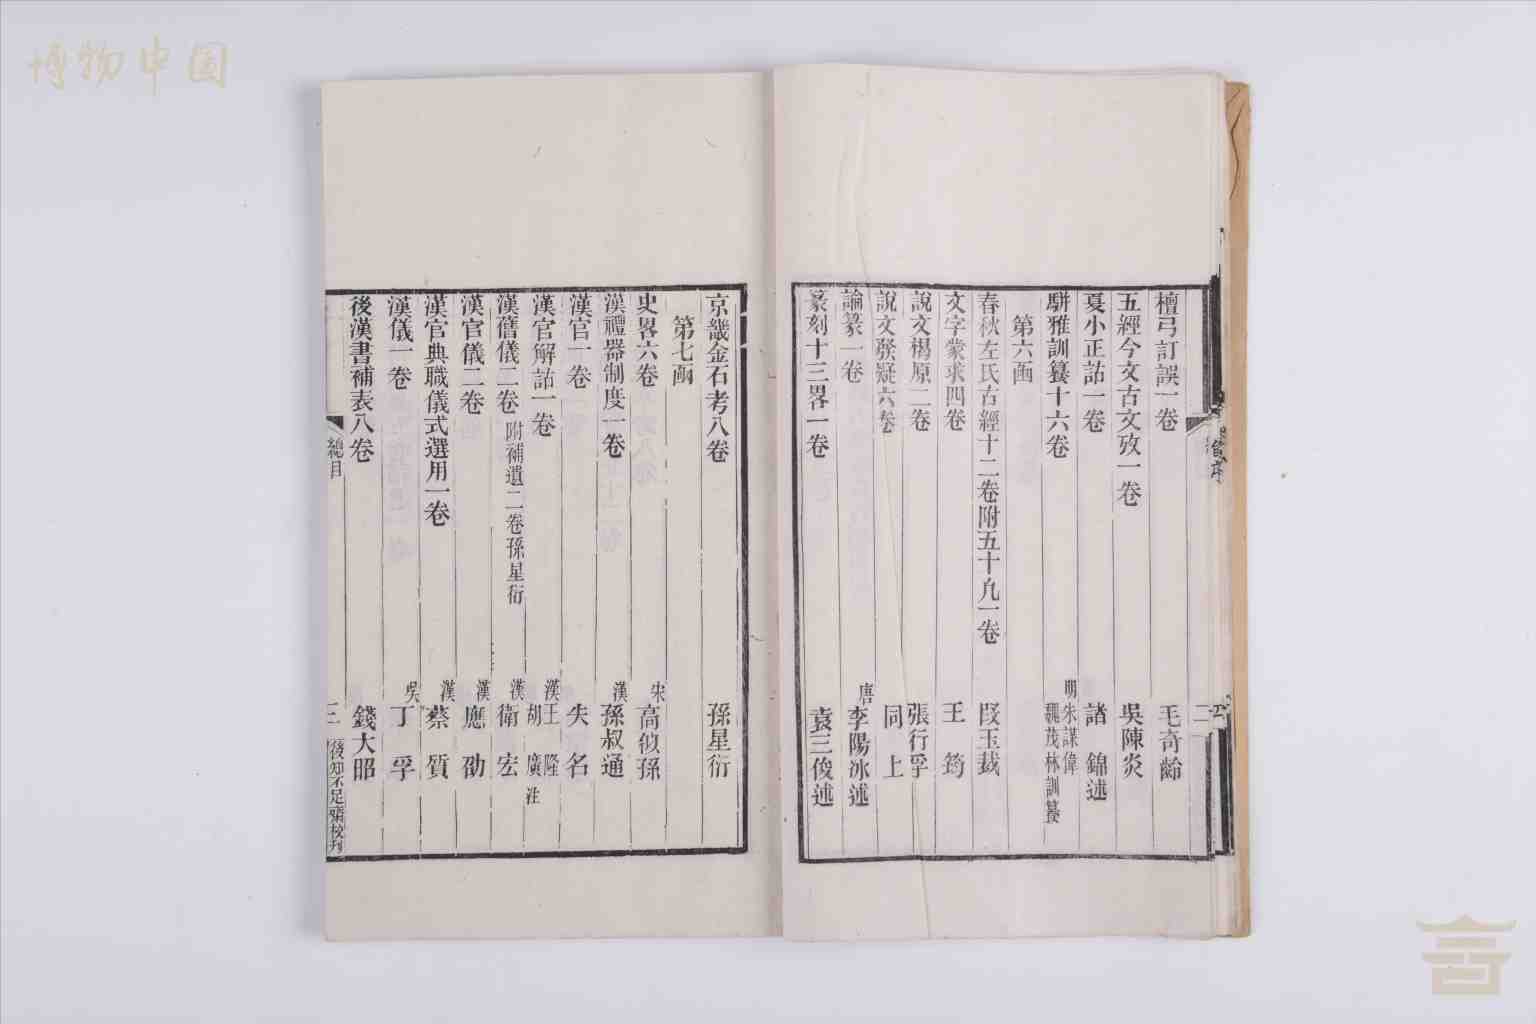 博物中国
檀弓訂誤一卷 毛奇齡
五經今文古文攷一卷 吳陳炎
夏小正詁一卷 諸錦述
駢雅訓纂十六卷 明朱謀㙔 魏茂林訓纂
第六函
春秋左氏古經十二卷附五十凡一卷 段玉裁
文字蒙求四卷 王筠
說文楬原二卷 張行孚
說文發疑六卷 同上
論篆一卷 唐李陽冰述
篆刻十三畧一卷 袁三俊述
京畿金石考八卷 孫星衍
第七函
史畧六卷 宋高似孫
漢禮器制度一卷 漢孫叔通
漢官一卷 失名
漢官解詁一卷 漢王隆 胡廣注
漢舊儀二卷附補遺二卷孫星衍 漢衛宏
漢官儀二卷 漢應劭
漢官典職儀式選用一卷 漢蔡質
漢儀一卷 吳丁孚
後漢書補表八卷 錢大昭
總目 三 後知不足齋校刊